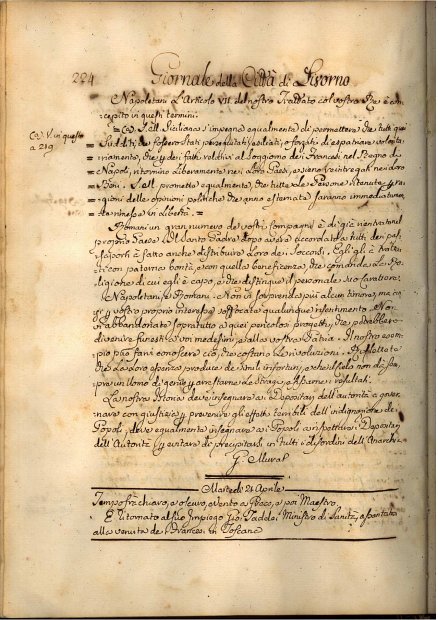 224 Giornale della Città di Livorno
Napoletani L'Articolo VII. del nostro Trattato col vostro Re è con-
cepito in questi termini.
(a) V. in questo
a 219
= (a) S. M. Siciliana s'impegna egualmente di permettere che tutti quei
= Sudditi che fossero stati perseguitati, esiliati, o forzati di espatriare volonta-
= riamente, che per dei fatti relativi al Soggiorno dei Francesi nel Regno di
= Napoli, ritornino liberamente nei loro Paesi, e sieno reintregati nei loro
= Beni. S. M. promette egualmente, che tutte le Persone ritenute per
= gioni delle opinioni politiche che anno esternate saranno immediatamen-
= te rimesse in Libertà. =
Romani un gran numero de vostri compagni è di già rientrato nel
proprio Paese. Il Santo Padre dopo avere accordato a tutti dei pas-
saporti è fatto anche distribuire Loro dei soccorsi. Egli gli à tratta-
ti con paterna bontà, e con quella beneficenza, che comanda la Re-
ligione di cui egli è capo, e che distingue il personale suo carattere.
Napoletani, e Romani. Non vi sorprenda più alcun timore, ma
per vostro proprio interesse soffocate qualunque risentimento. Non
vi abbandonate sopratutto a quei pericolosi progetti, che potrebbero
divenire funesti a voi medesimi, e alla vostra Patria. Il nostro esem-
pio può farvi conoscere ciò, che costano le rivoluzioni. Riflettete
che la loro esplosione produce de' mali infiniti, e che il Cielo non dà sem-
pre un Uomo di genio per arrestarne le stragi, e fissarne i resultati.
La nostra Storia deve insegnare ai Depositarj dell'autorità a gover-
nare con giustizia per prevenire gli effetti terribili dell'indignazione dei
Popoli, e deve egualmente insegnare ai Popoli a rispettare i Depositarj
dell'Autorità per evitare di precipitarsi in tutti i disordini dell'Anarchia.
G. Murat
Martedì 21 Aprile
Tempo frà chiaro, e oscuro, e vento a Greco, e poi Maestro.
È ritornato al suo Impiego Gio: Taddei Ministro di Sanità, espatriato
alla venuta de' Francesi in Toscana